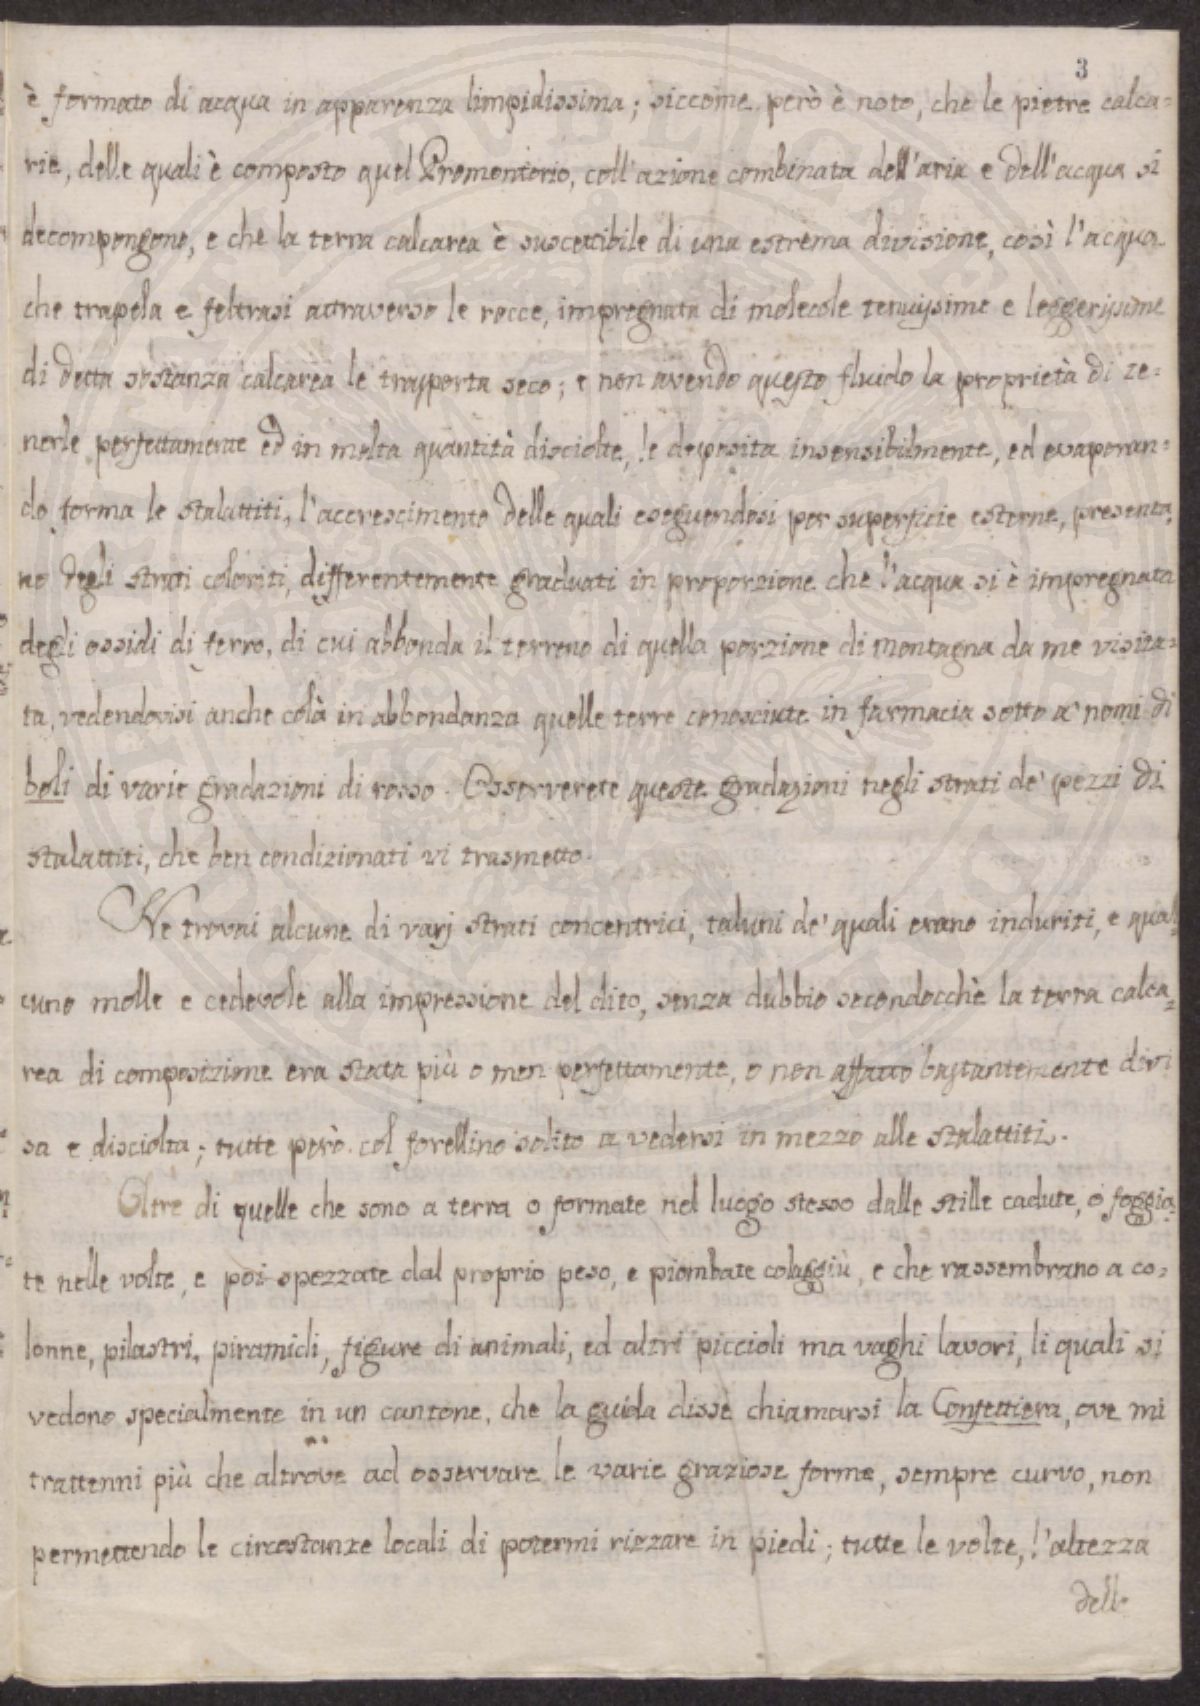 3
è formato di acqua in apparenza limpidissima; siccome però è noto, che le pietre calca=
rie, delle quali è composto quel Promontorio, coll'azione combinata dell'aria e dell'acqua si
decompongono, e che la terra calcarea è suscettibile di una estrema divisione, così l'acqua
che trapela e feltrasi attraverso le rocce, impregnata di molecole tenuissime e leggerissime
di detta sostanza calcarea le trasporta seco; e non avendo questo fluido la proprietà di te=
nerle perfettamente ed in molta quantità disciolte, le deposita insensibilmente, ed evaporan=
do forma le stalattiti, l'accrescimento delle quali eseguendosi per superficie esterne, presenta
no degli strati coloriti, differentemente graduati in proporzione che l'acqua si è impregnata
degli ossidi di ferro, di cui abbonda il terreno di quella porzione di montagna da me visita=
ta, vedendovisi anche colà in abbondanza quelle terre conosciute in farmacia sotto a' nomi di
boli di varie gradazioni di rosso. Osserverete queste gradazioni negli strati de' pezzi di
stalattiti, che ben condizionati vi trasmetto.
Ne trovai alcune di varj strati concentrici, taluni de' quali erano induriti, e qual=
cuno molle e cedevole alla impressione del dito, senza dubbio secondocchè la terra calca=
rea di composizione era stata più o men perfettamente, o non affatto bastantemente divi
sa e disciolta; tutte però col forellino solito a vedersi in mezzo alle stalattiti.
Oltre di quelle che sono a terra o formate nel luogo stesso dalle stille cadute, o foggia=
te nelle volte, e poi spezzate dal proprio peso, e piombate colaggiù, e che rassembrano a co=
lonne, pilastri, piramidi, figure di animali, ed altri piccioli ma vaghi lavori, li quali si
vedono specialmente in un cantone, che la guida disse chiamarsi la Confettiera, ove mi
trattenni più che altrove ad osservare le varie graziose forme, sempre curvo, non
permettendo le circostanze locali di potermi rizzare in piedi; tutte le volte, l'altezza
delle